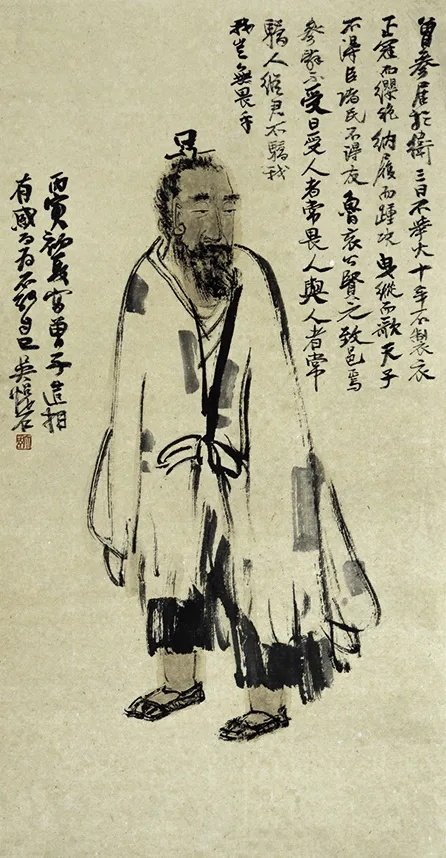 曾參居於衛三日不舉火十年不製衣
正冠而纓絕納履而踵決曳縱而歌天子
不得臣諸民不得友魯哀公賢之致邑焉
參辭不受曰受人者常畏人與人者常
驕人縱君不驕我
我豈無畏乎
丙寅初夏寫曾子造相
有感而为不能自已 吳悅石